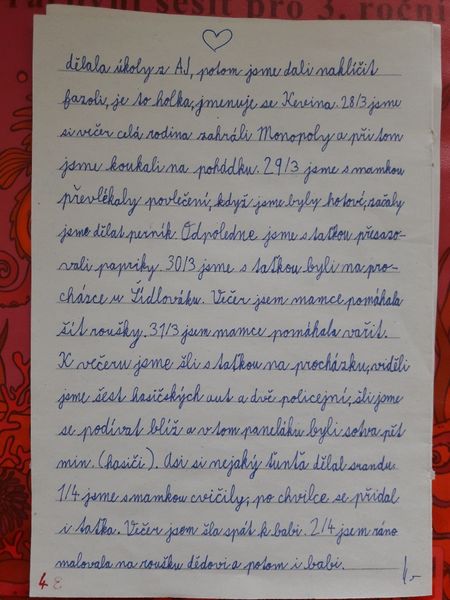 pracovní sešit pro 3. ročník
dělala úkoly z AJ, potom jsme dali naklíčit
fazoli, je to holka, jmenuje se Kevina. 28/3 jsme
si večer celá rodina zahráli Monopoly a při tom
jsme koukali na pohádku. 29/3 jsme s mamkou
převlékaly povlečení, když jsme byly hotové, začaly
jsme dělat perník. Odpoledne jsme s taťkou přesazo-
vali papriky. 30/3 jsme s taťkou byli na pro-
cházce u Šídlováku. Večer jsem mamce pomáhala
šít roušky. 31/3 jsem mamce pomáhala vařit.
K večeru jsme šli s taťkou na procházku, viděli
jsme šest hasičských aut a dvě policejní, šli jsme
se podívat blíž a v tom paneláku byli sotva pět
min. (hasiči). Asi si nejaký ťunťa dělal srandu.
1/4 jsme s mamkou cvičily, po chvilce se přidal
i taťka. Večer jsem šla spát k babi. 2/4 jsem ráno
malovala na roušku dědovi a potom i babi.
4